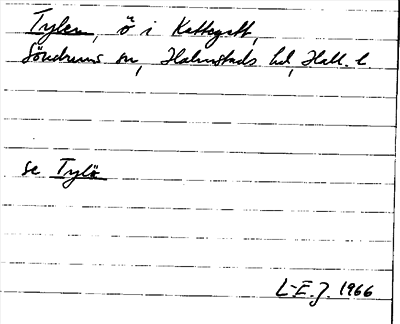 Tylen, ö i Kattegatt,
Söndrums sn, Halmstads hd, Hall. l.
se Tylö
L-E. J. 1966